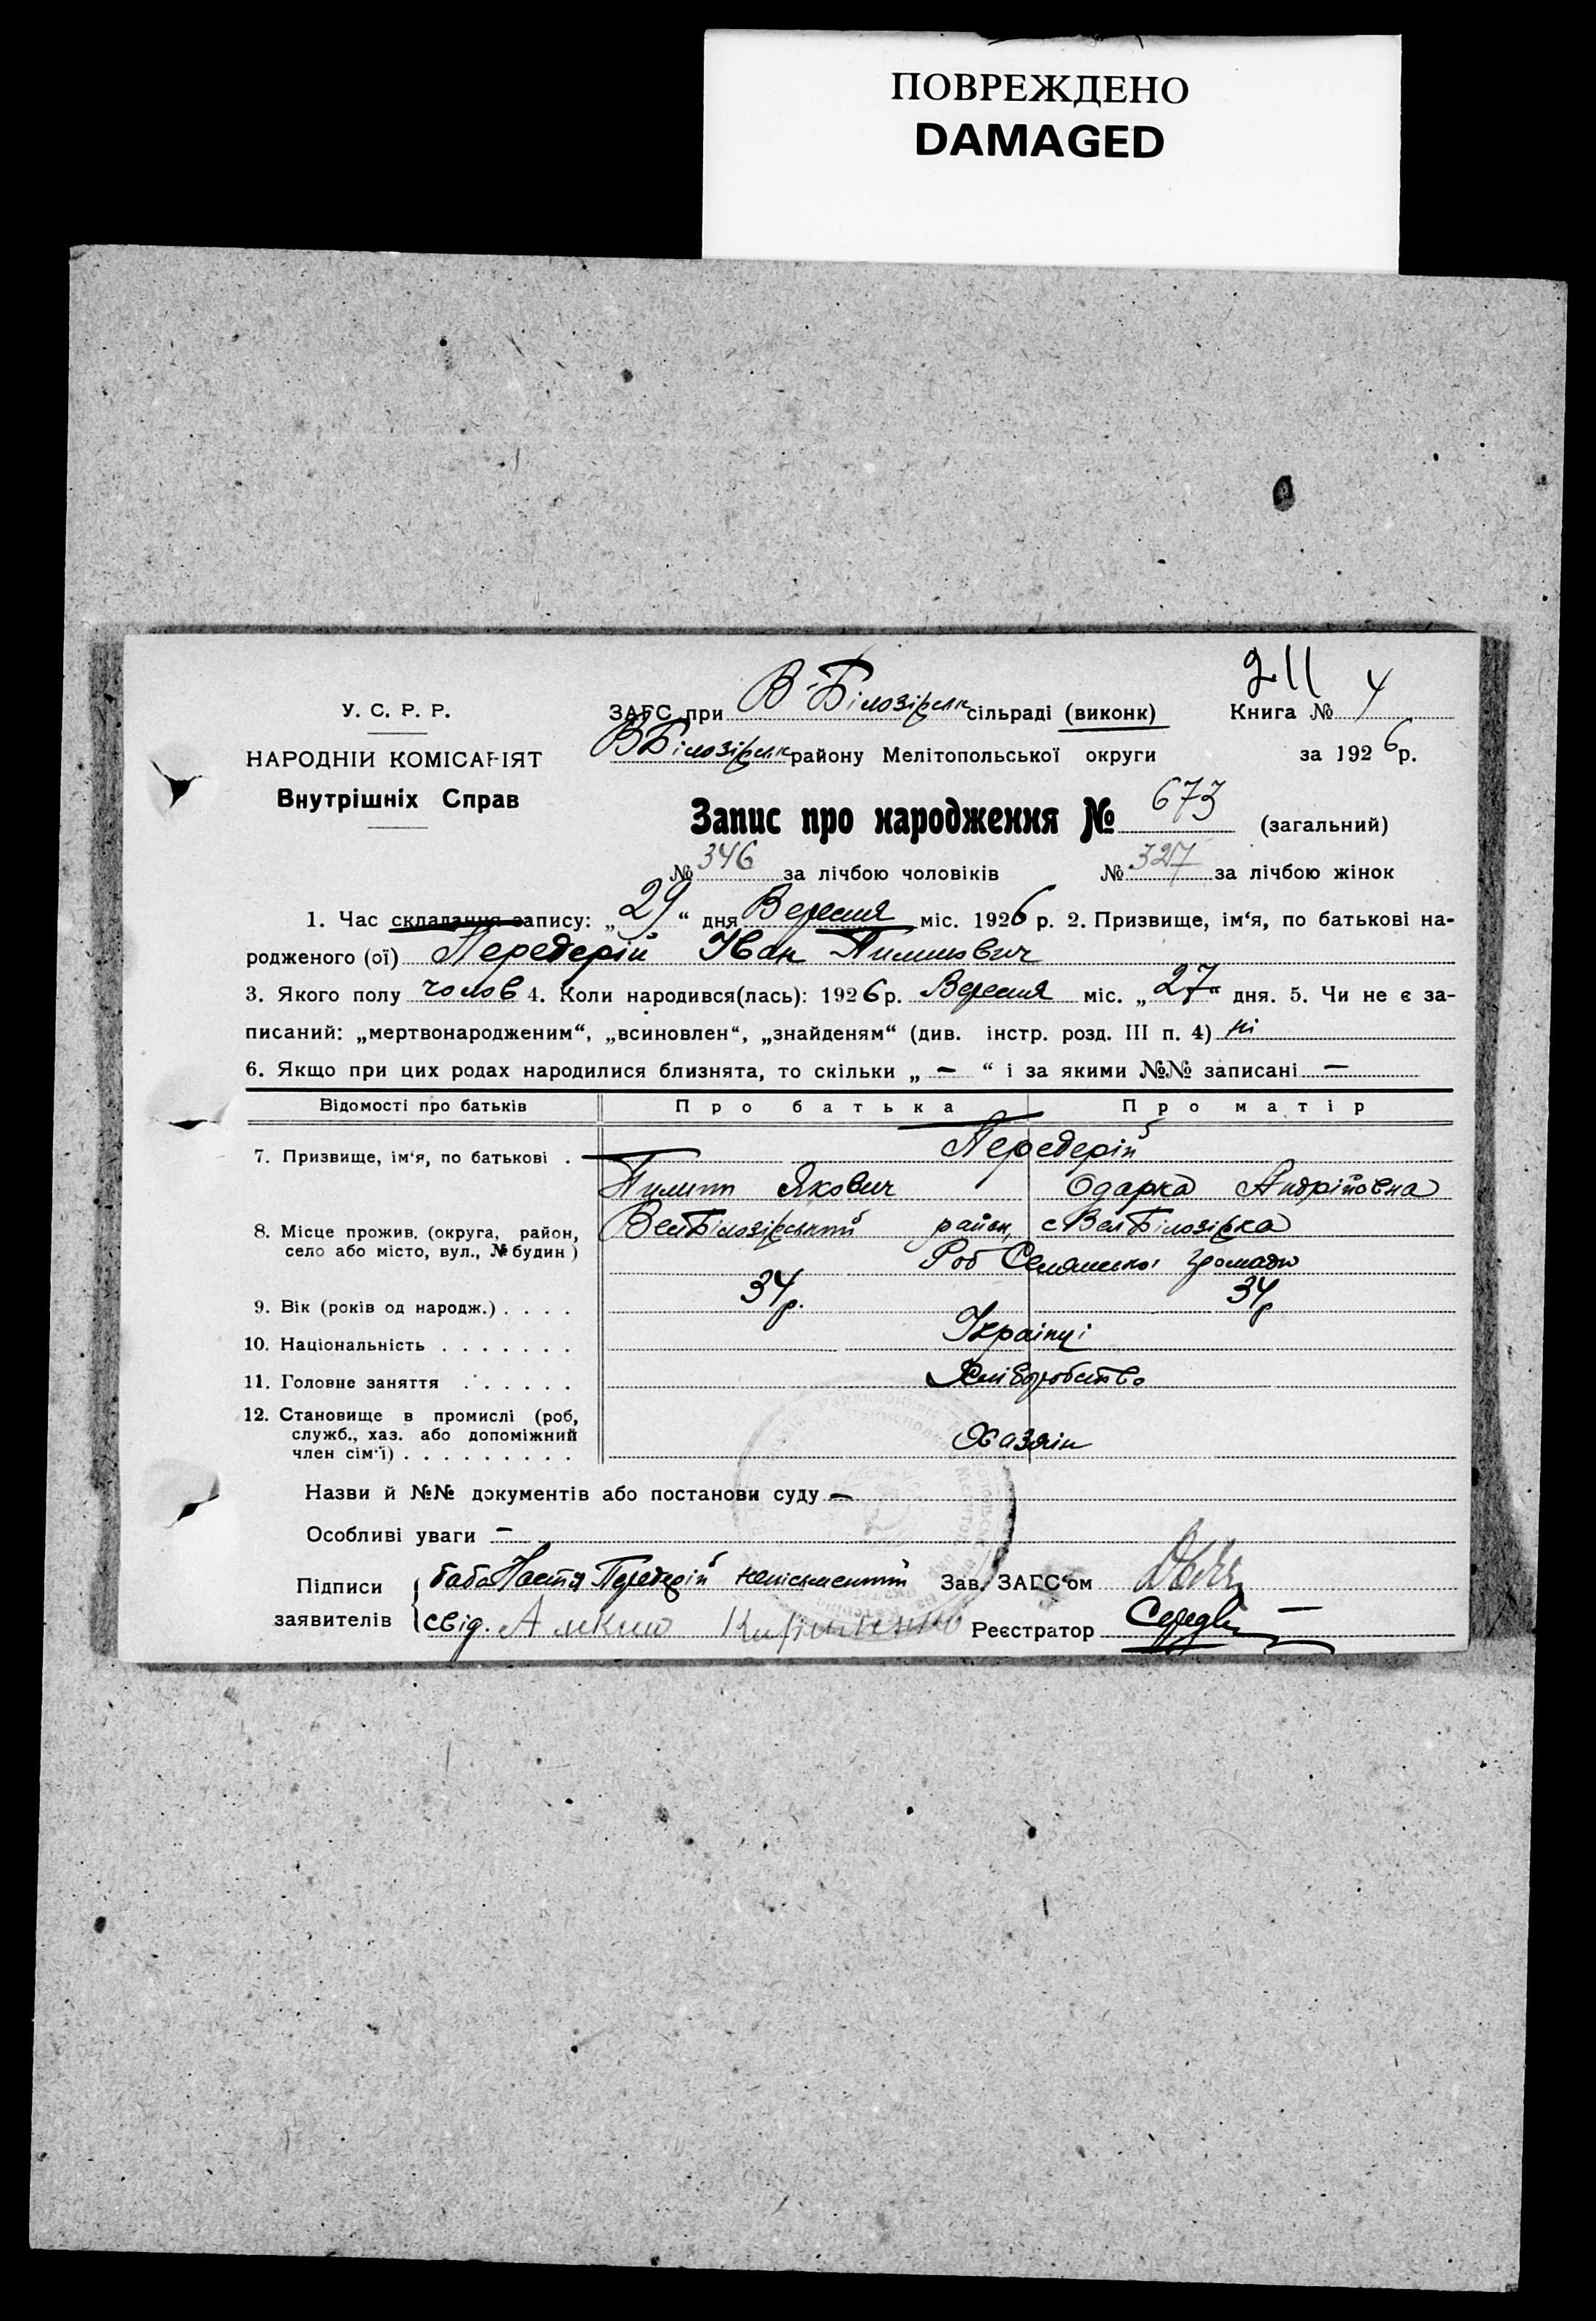 ПОВРЕЖДЕНО
DAMAGED
211
У. С. Р. Р.
НАРОДНІЙ КОМІСАРІЯТ
Внутрішніх Справ
ЗАГС при В-Білозірськ сільраді (виконк)
Книга № 4
ВБілозірськ району Мелітопольської округи
за 1926 р.
Запис про народження № 673 (загальний)
№ 346 за лічбою чоловіків № 327 за лічбою жінок
1. Час складання запису: „29“ дня Вересня міс. 1926 р. 2. Призвище, ім‘я, по батькові на-
родженого (ої) Передерій Іван Пилипович
3. Якого полу чолов 4. Коли народився(лась): 1926 р. Вересня міс. „27“ дня. 5. Чи не є за-
писаний: „мертвонародженим“, „всиновлен“, „знайденям“ (див. інстр. розд. III п. 4) ні
6. Якщо при цих родах народилися близнята, то скільки „ — “ і за якими №№ записані —
Відомості про батьків Про батька Про матір
7. Призвище, ім‘я, по батькові . Передерій
Пилип Якович Одарка Андріївна
8. Місце прожив. (округа, район, село або місто, вул., № будин) ВелБілозірський район, с ВелБілозірка
Громади
9. Вік (років од народж.) . . . . 34 р. 34 р
10. Національність . . . . . . . Українці
11. Головне заняття . . . . . . Хліборобство
12. Становище в промислі (роб,
служб., хаз. або допоміжний
член сім‘ї) . . . . . . . . . Хазяїн
Назви й №№ документів або постанови суду —
Особливі уваги —
Підписи заявителів баба Настя Передерій неписьменний
свід.
Зав. ЗАГС‘ом
Реєстратор